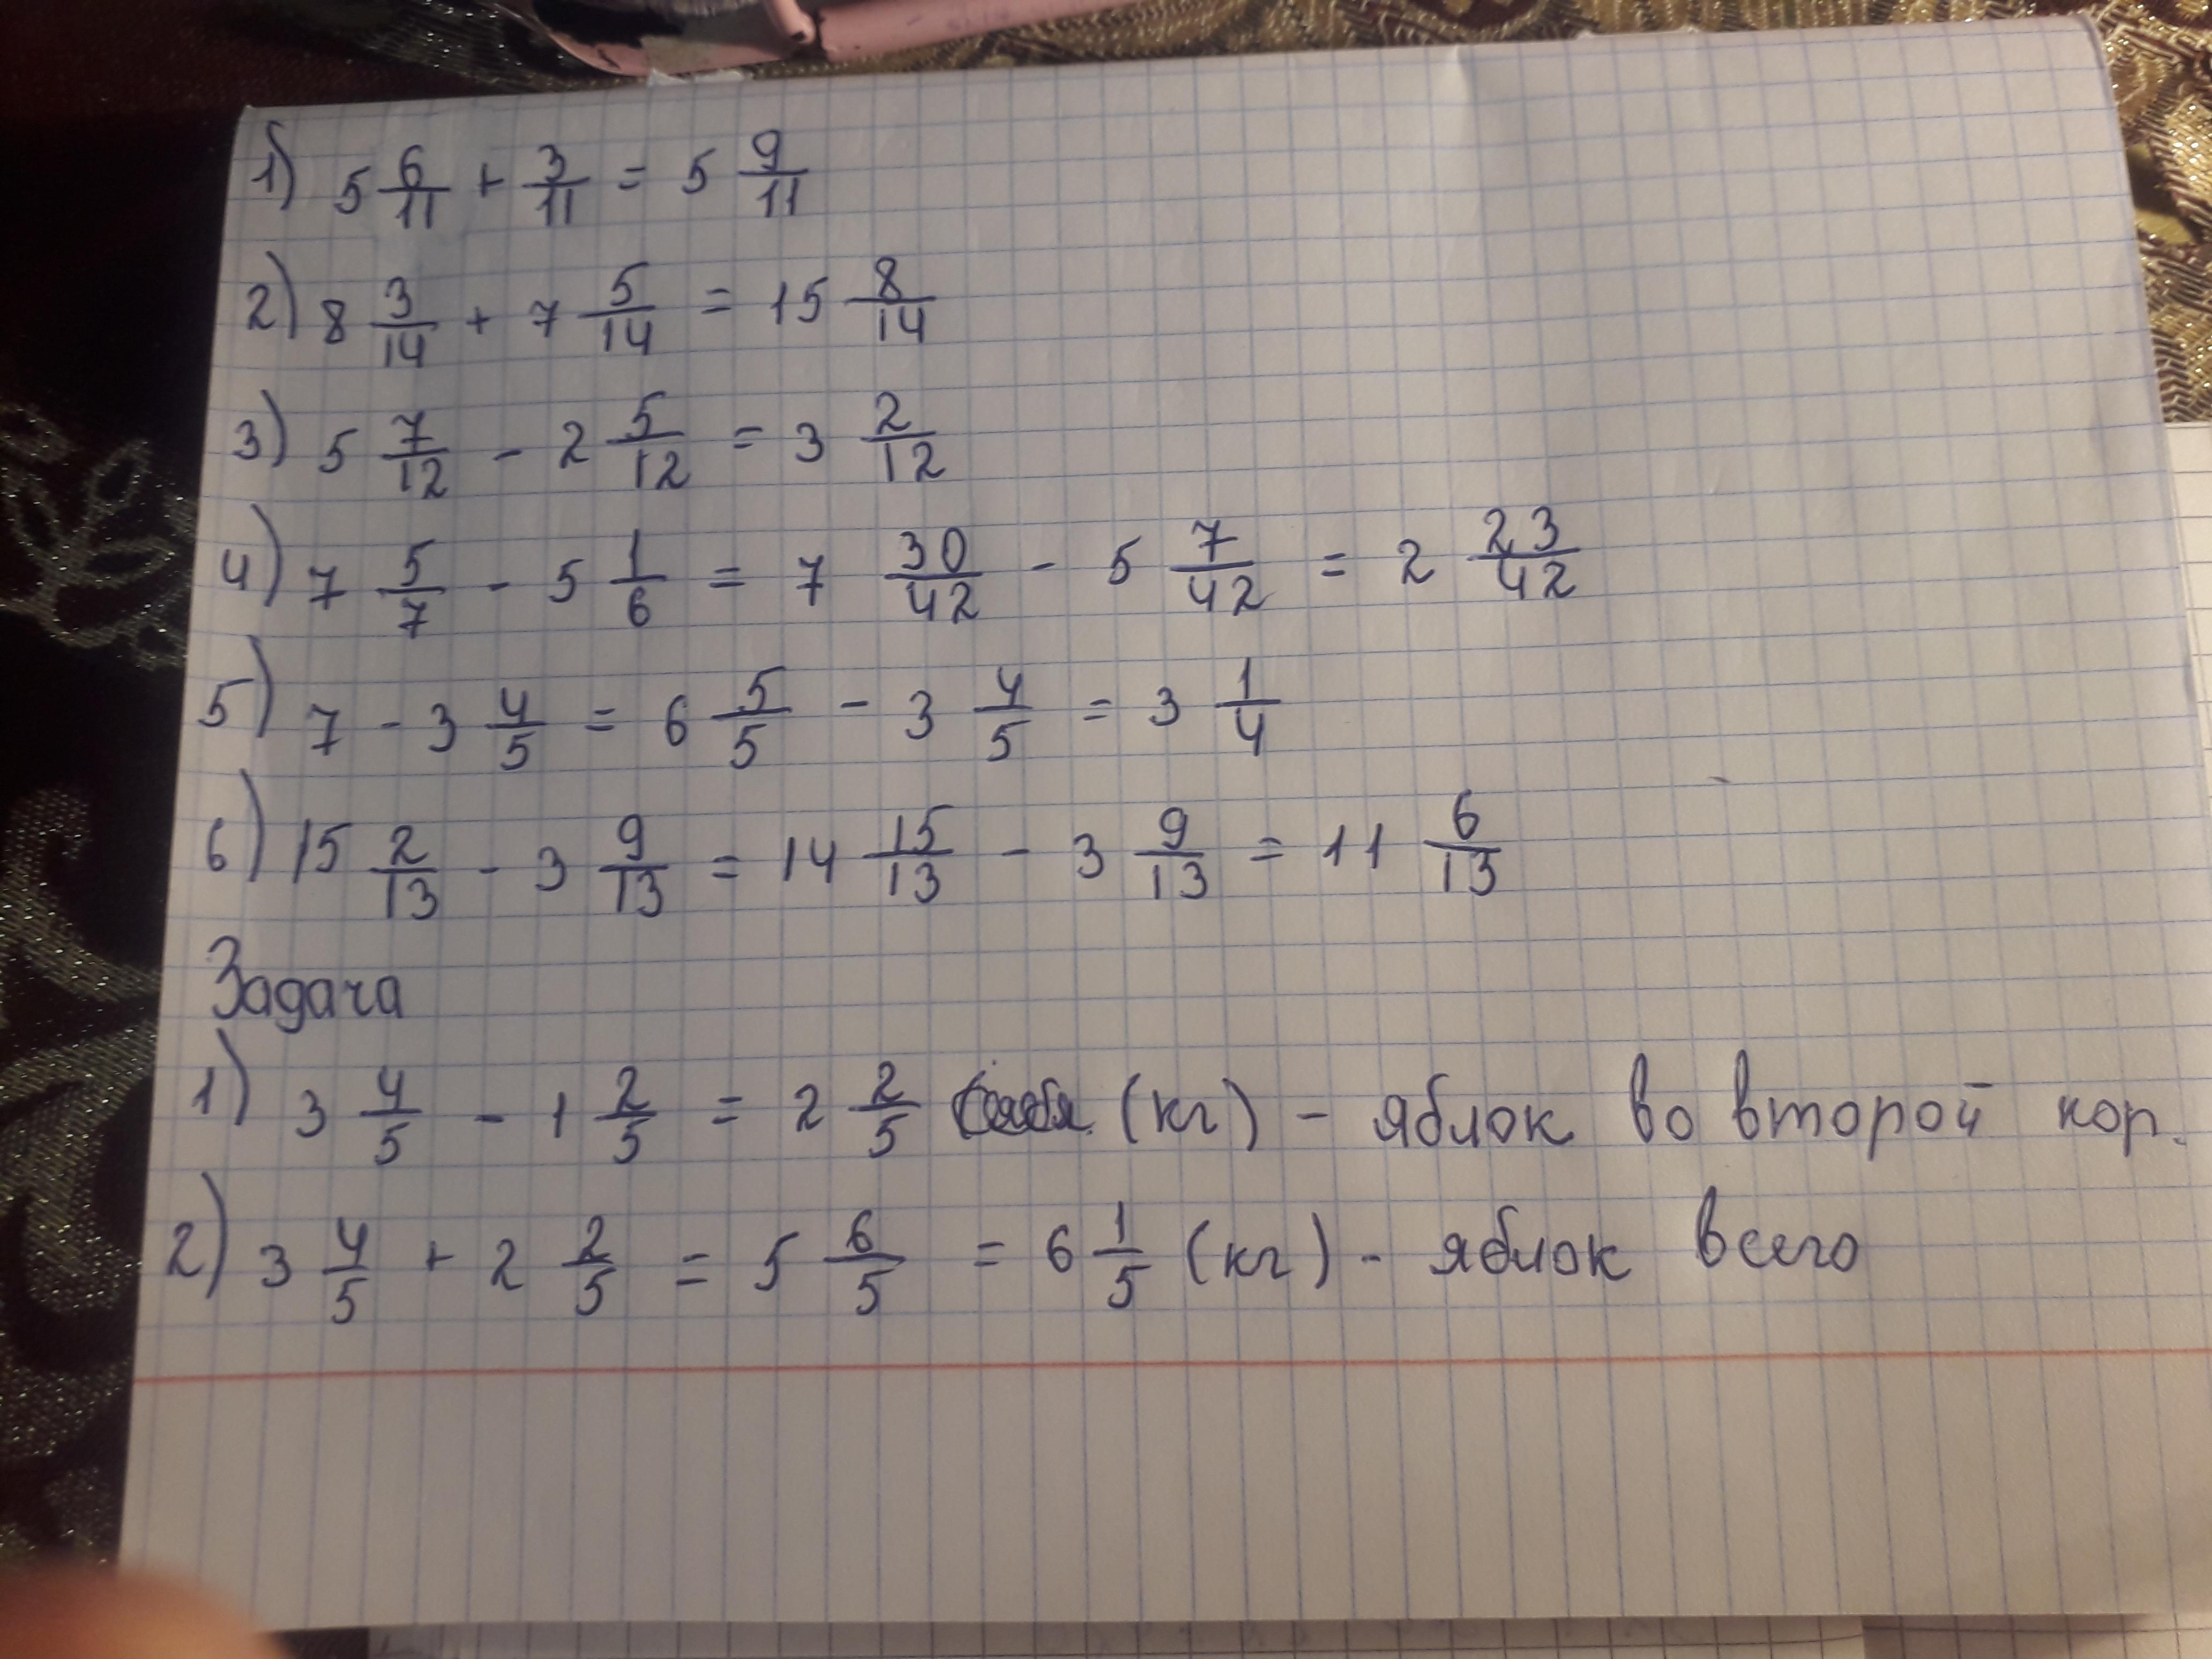 1) 5 6/11 + 3/11 = 5 9/11
2) 8 3/14 + 7 5/14 = 15 8/14
3) 5 7/12 - 2 5/12 = 3 2/12
4) 7 5/7 - 5 1/6 = 7 30/42 - 5 7/42 = 2 23/42
5) 7 - 3 4/5 = 6 5/5 - 3 4/5 = 3 1/4
6) 15 2/13 - 3 9/13 = 14 15/13 - 3 9/13 = 11 6/13
Задача
1) 3 4/5 - 1 2/5 = 2 2/5 (кг) - яблок во второй кор.
2) 3 4/5 + 2 2/5 = 5 6/5 = 6 1/5 (кг) - яблок всего